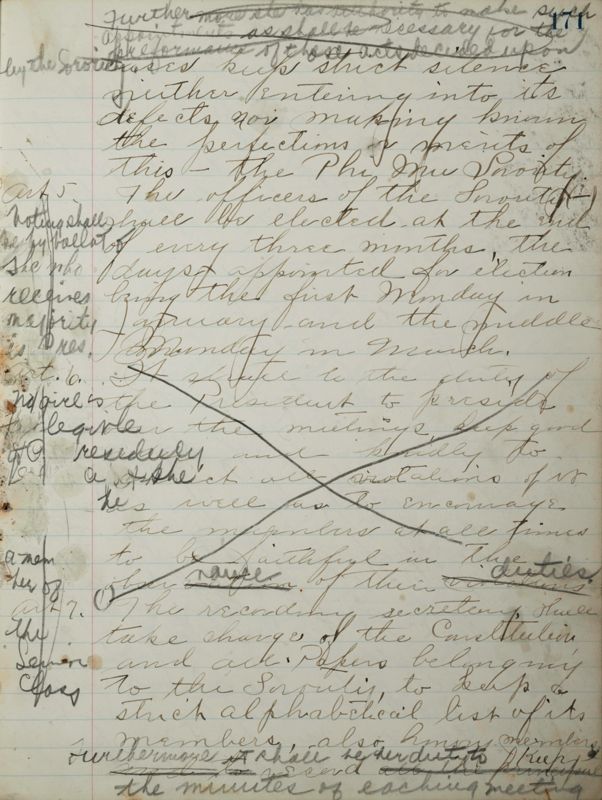 171
Further more she has authority to make such
appointments as shall be necessary for the
performance of those acts decided upon
by the Sorority
cases keep strict silence
neither entering into its
defects, nor making known
the perfections or merits of
this – the Phi Mu Sorority.
Art 5. The officers of the Sorority
shall be elected at the end
of every three months, the
days appointed for election
being the first Monday in
January and the middle
Monday in March.
Voting shall
be by ballot
She who
receives
majority
is Pres.
Art. 6. It shall be the duty of
the President to preside
over the meetings, keep good
and kindly to
all violations of it
as well as to encourage
the members at all times
to be faithful in the
name of their duties.
No one is
eligible
she
be
a mem
ber of
the
Senior
Class
Art 7. The recording secretary shall
take charge of the Constitution
and all Papers belonging
to the Sorority, to keep a
strict alphabetical list of its
members, also honorary members
Furthermore it shall be her duty to keep
record
the minutes of each meeting